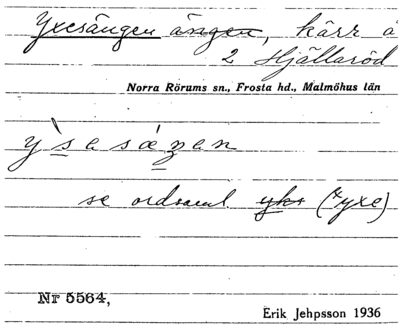 Yxesängen ängen, kärr å
2 Hjällaröd
Norra Rörums sn., Frosta hd., Malmöhus län
y̏sesæŋen
se ordsaml yks (*yxe)
Nr 5564,
Erik Jehpsson 1936